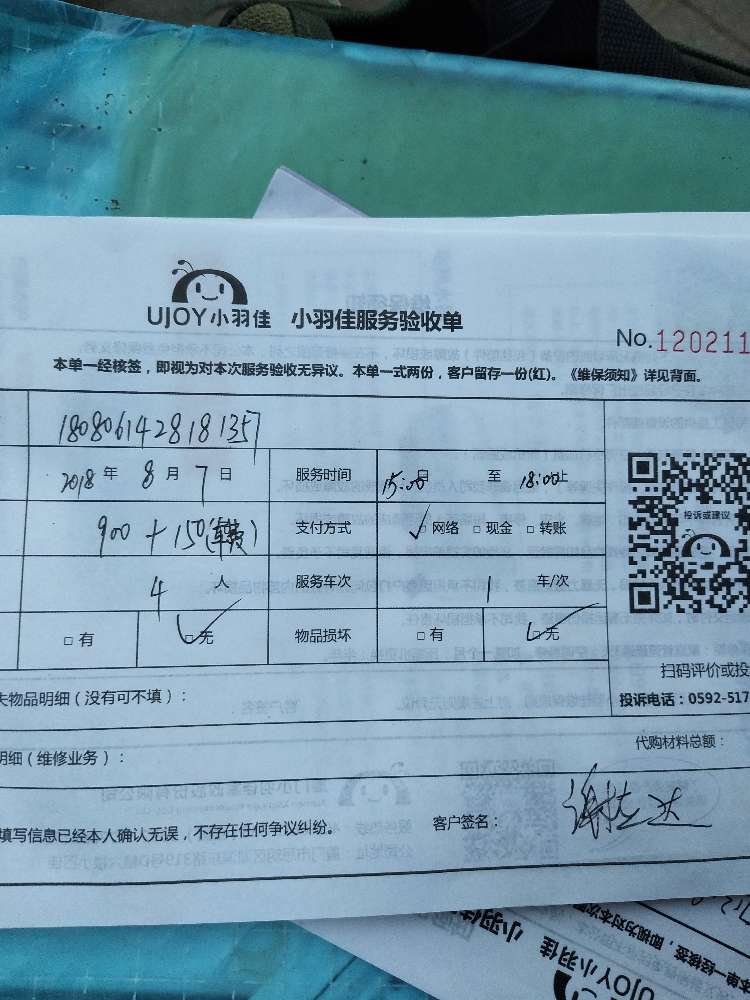 UJOY小羽佳 小羽佳服务验收单
No.120211
本单一经核签，即视为对本次服务验收无异议。本单一式两份，客户留存一份(红)。《维保须知》详见背面。
18080614281813571
2018 年 8 月 7 日 服务时间 15:00 至 18:00 止
900 + 150 支付方式 ✓□网络 □现金 □转账
4 人 服务车次 1 车/次
□有 ☑无 物品损坏 □有 ☑无
投诉或建议
扫码评价或投
失物品明细（没有可不填）：
投诉电话：0592-517
明细（维修业务）：
代购材料总额：
填写信息已经本人确认无误，不存在任何争议纠纷。 客户签名：
小羽佳
UJOY小羽佳
本单一经核签，即视为对本次